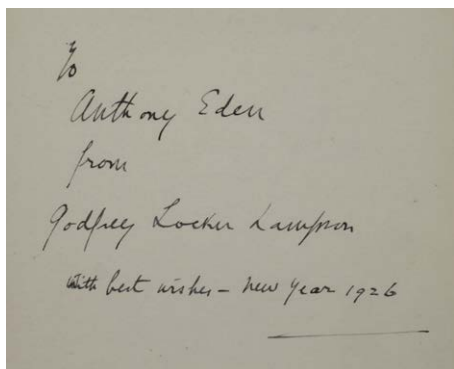 To
Anthony Eden
from
Godfrey Locker Lampson
with best wishes – New Year 1926